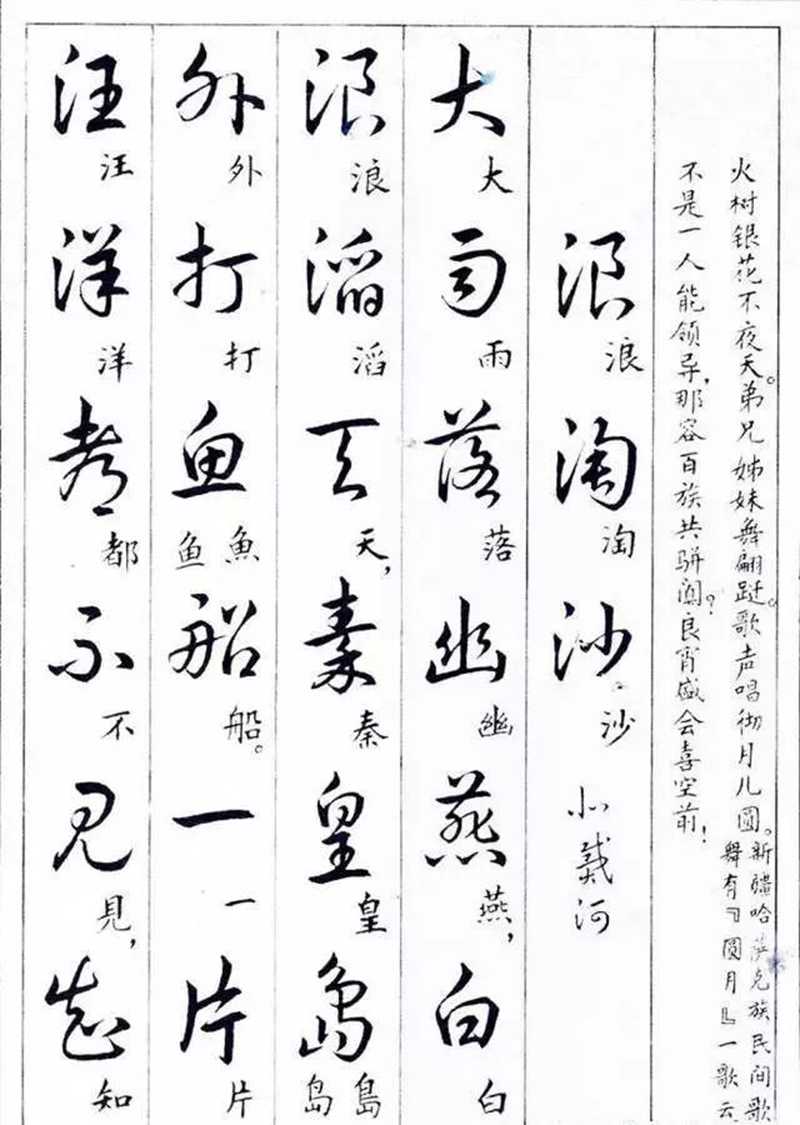 火树银花不夜天。弟兄姊妹舞翩跹。歌声唱彻月儿圆。
新疆哈萨克族民间歌
舞有『圆月』一歌云
不是一人能领导,那容百族共骈阗?良宵盛会喜空前!
浪淘沙。北戴河
浪淘沙
大雨落幽燕白
大雨落幽燕,白
浪滔天秦皇岛
浪滔天,秦皇島岛
外打鱼船一片
外打魚鱼船。一片
汪洋都不见知
汪洋都不見,知